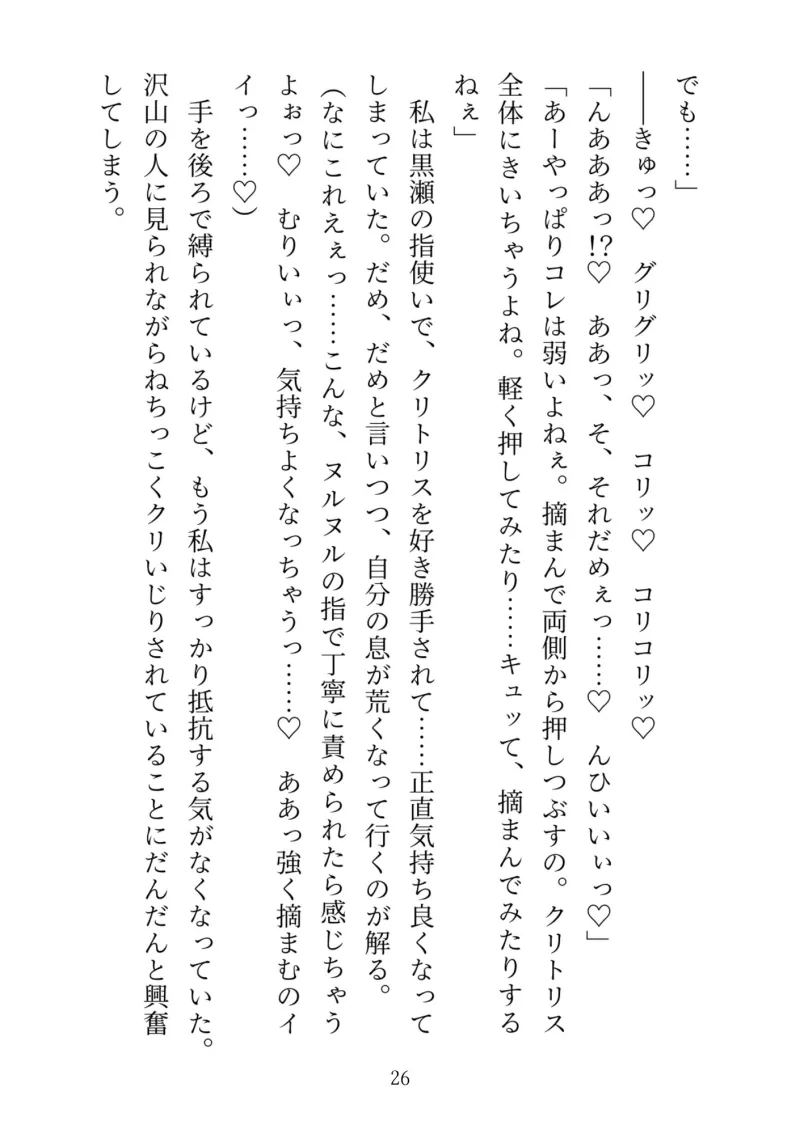 でも……」
――きゅっ♡　グリグリッ♡　コリッ♡　コリコリッ♡
「んあああっ!?♡　ああっ、そ、それだめぇっ……♡　んひいいぃっ♡」
「あーやっぱりコレは弱いよねぇ。摘まんで両側から押しつぶすの。クリトリス
全体にきいちゃうよね。軽く押してみたり……キュッて、摘まんでみたりする
ねぇ」
　私は黒瀬の指使いで、クリトリスを好き勝手されて……正直気持ち良くなって
しまっていた。だめ、だめと言いつつ、自分の息が荒くなって行くのが解る。
(なにこれえぇっ……こんな、ヌルヌルの指で丁寧に責められたら感じちゃう
よぉっ♡　むりいぃっ、気持ちよくなっちゃうっ……♡　ああっ強く摘まむのイ
イっ……♡)
　手を後ろで縛られているけど、もう私はすっかり抵抗する気がなくなっていた。
沢山の人に見られながらねちっこくクリいじりされていることにだんだんと興奮
してしまう。
26